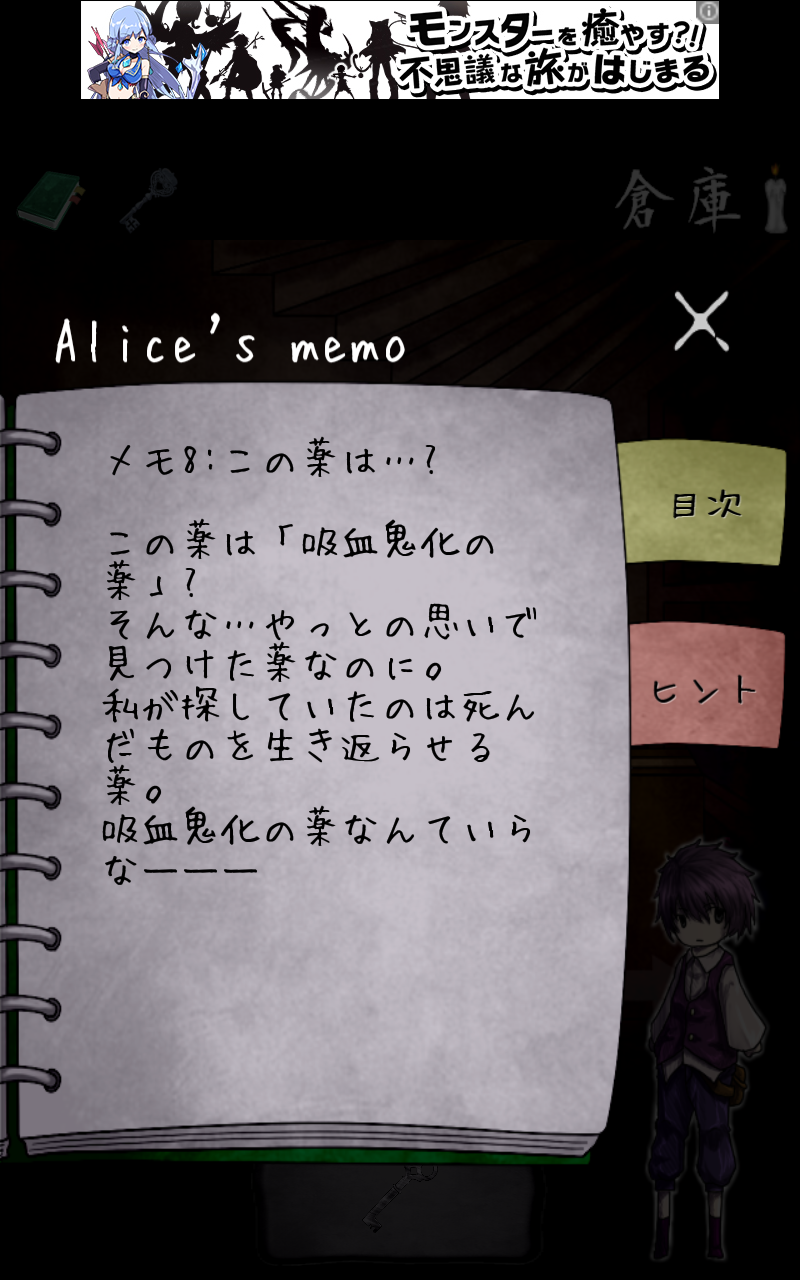 モンスターを癒やす?!
不思議な旅がはじまる
倉庫
Alice's memo
メモ8:この薬は…?
この薬は「吸血鬼化の
薬」?
そんな…やっとの思いで
見つけた薬なのに。
私が探していたのは死ん
だものを生き返らせる
薬。
吸血鬼化の薬なんていら
なーーー
目次
ヒント